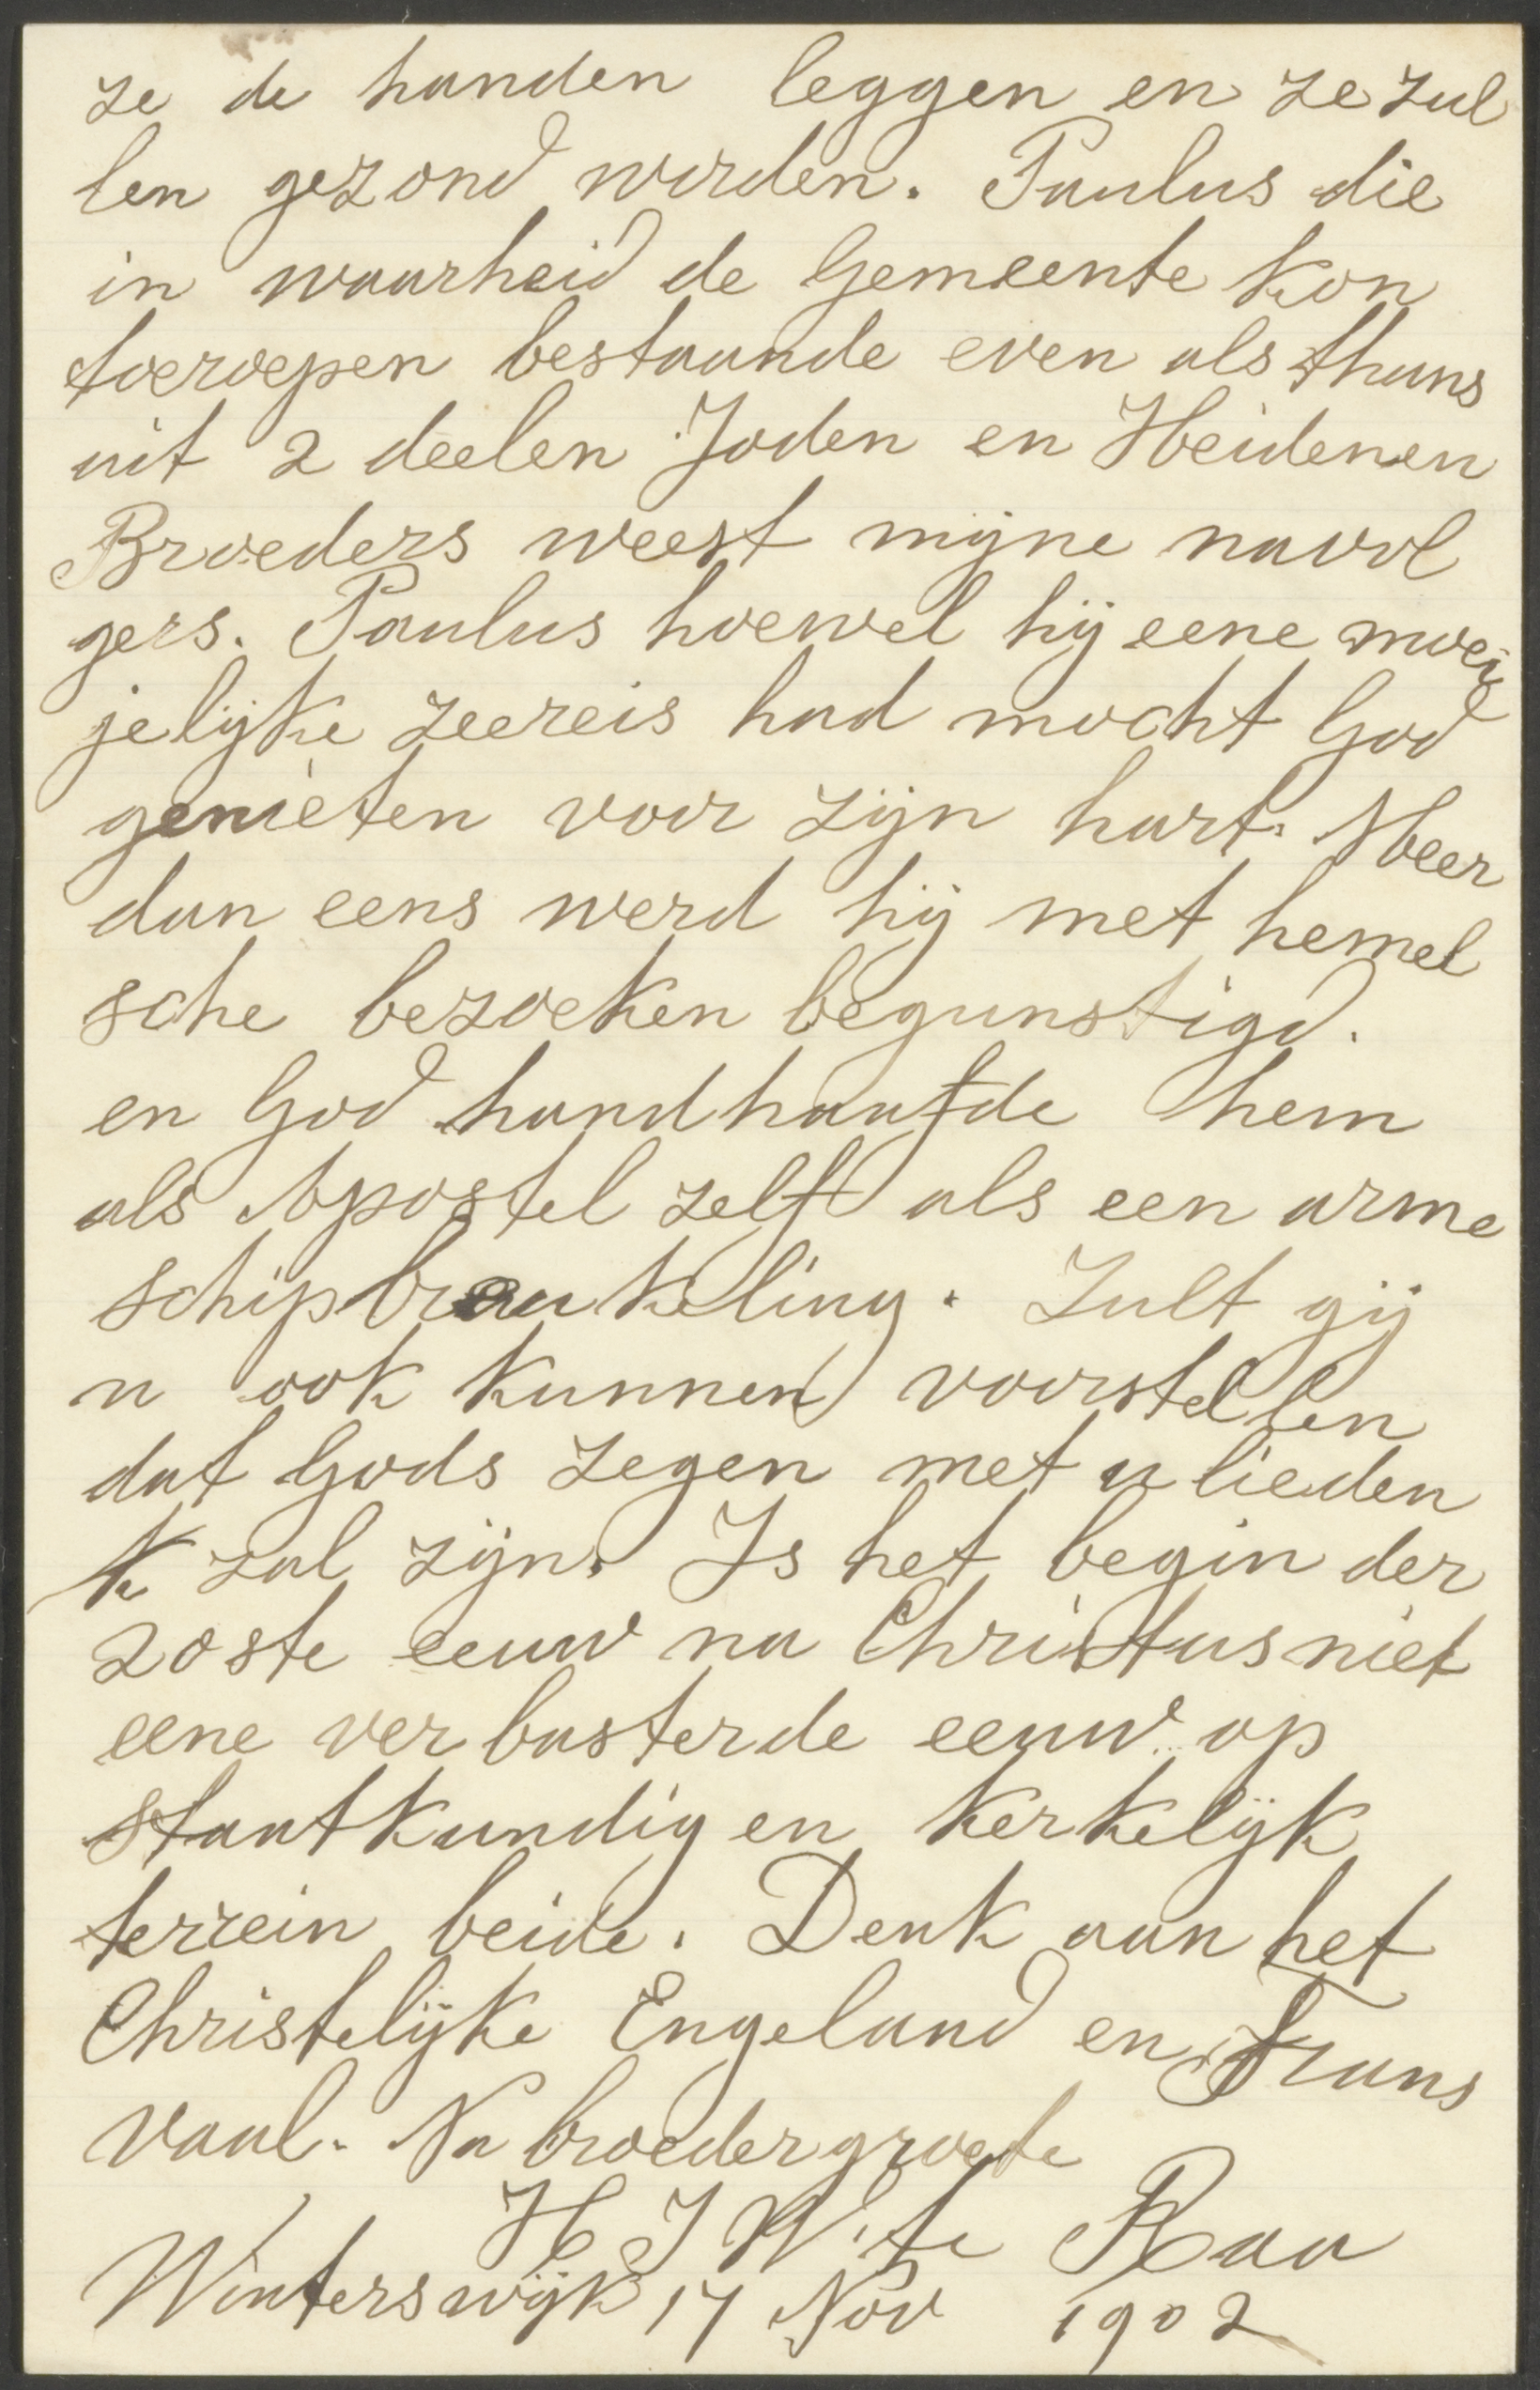 ze de handen leggen en ze zul
len gezond worden. Paulus die
in waarheid de Gemeente kon
toeroepen bestaande even als thans
uit 2 deelen Joden en Heidenen
Broeders weest mijne navol
gers. Paulus hoewel hij eene moei
jelijke zeereis had mocht God
genieten voor zijn hart. Meer
dan eens werd hij met hemel
sche bezoeken begunstigd.
en God handhaafde hem
als Apostel zelf als een arme
schipbreukeling. Zult gij
u ook kunnen voorstellen
dat Gods zegen met u lieden
zal zijn. Is het begin der
20ste eeuw na Christus niet
eene verbasterde eeuw op
staatkundig en kerkelijk
terrein beide. Denk aan het
Christelijke Engeland en Trans
vaal. Na broedergroete
H J W. te Raa
Winterswijk 17 Nov 1902